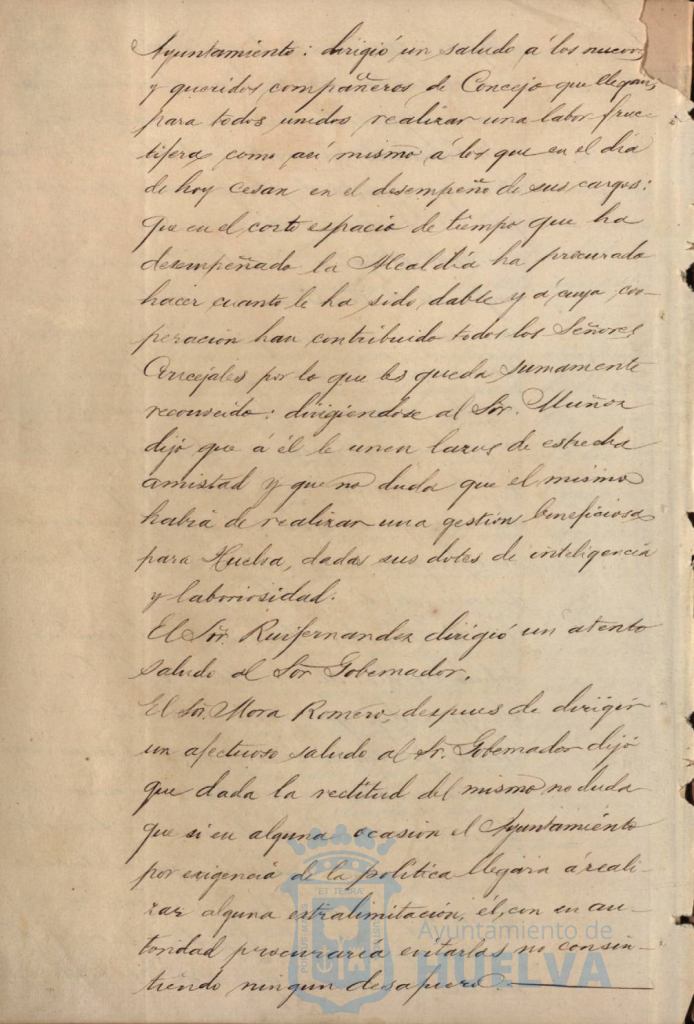 Ayuntamiento: dirigió un saludo á los nuevos
y queridos compañeros de Concejo que llegan,
para todos unidos realizar una labor fruc-
tifera como asi mismo á los que en el dia
de hoy cesan en el desempeño de sus cargos:
que en el corto espacio de tiempo que ha
desempeñado la Alcaldía ha procurado
hacer cuanto le ha sido dable y á cuya coo-
peracion han contribuido todos los Señores
Concejales por lo que les queda sumamente
reconocido: dirigiendose al Sor. Muñoz
dijo que á él le unen lazos de estrecha
amistad y que no duda que el mismo
habrá de realizar una gestion beneficiosa
para Huelva, dadas sus dotes de inteligencia
y laboriosidad.
El Sor. Ruifernandez dirigió un atento
saludo al Sor Gobernador.
El Sor. Mora Romero, despues de dirigir
un afectuoso saludo al Sr. Gobernador dijó
que dada la rectitud del mismo no duda
que si en alguna ocasion el Ayuntamiento
por exigencia de la política llegara á reali-
zar alguna extralimitación, él, con su au-
toridad procuraría evitarlas no consin-
tiendo ningun desafuero.
Ayuntamiento de
HUELVA